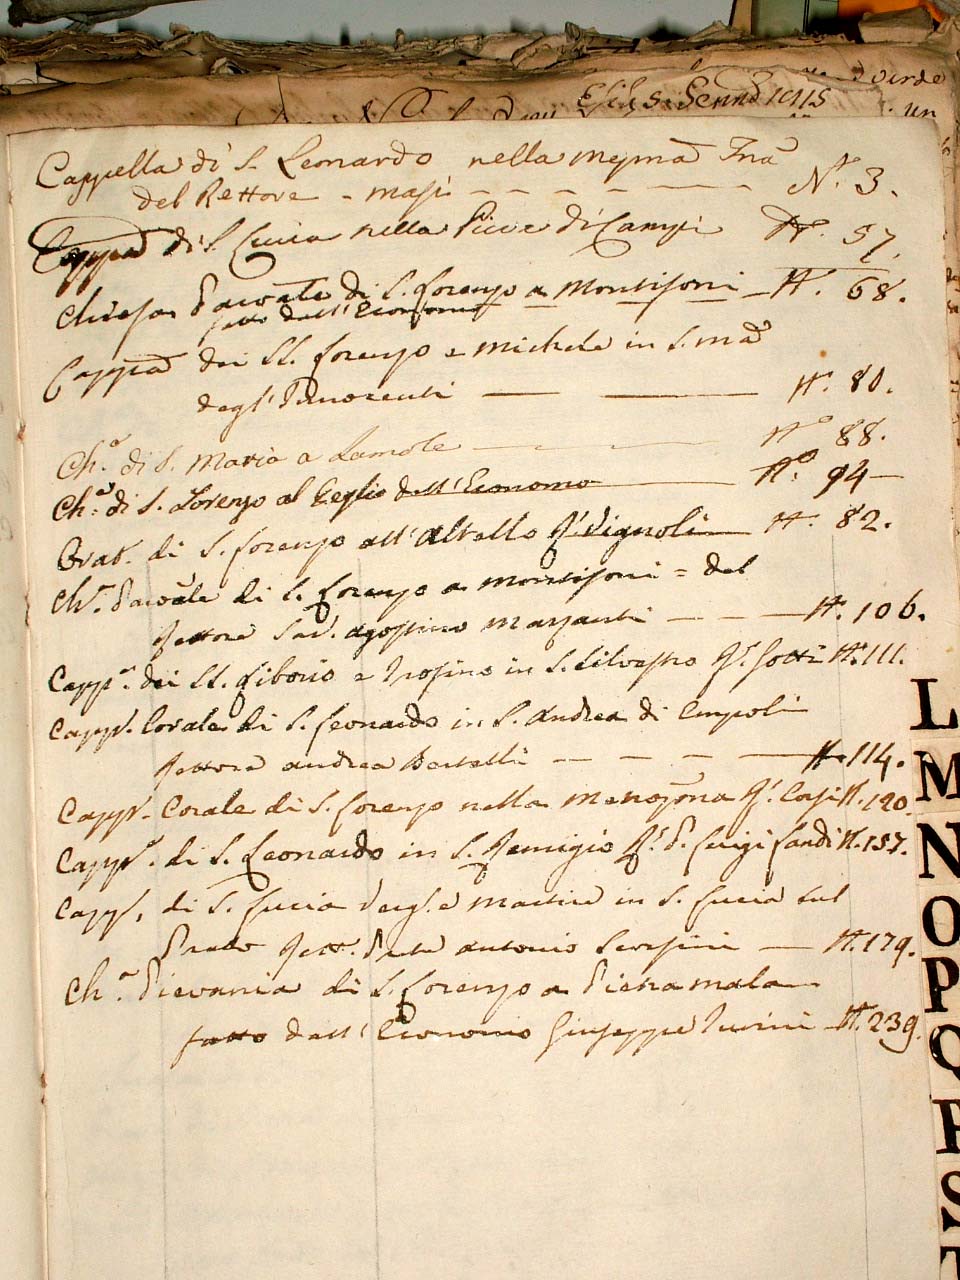 Esib. 5. Genn. 1815
Cappella di S. Leonardo nella
del Rettore - Masi - - - - - - N.º 3.
Cappa di S. Lucia nella Pieve di Campi N. 57.
Chiesa Parocale di S. Lorenzo a Montisoni - N. 68.
fatto dall'Economo
Cappa dei SS. Lorenzo e Michele in S. Ma
degl'Innocenti — — N. 80.
Ch.a di S. Maria a Lamole — - — N.º 88.
Ch.a di S. Lorenzo al dell'Economo — N.º 94 —
Orat. di S. Lorenzo all'Albello R.e Vignoli — N. 82.
Ch.a Parocale di S. Lorenzo a Montisoni = del
Rettore Sac. Agostino Marzanti — — — N. 106.
Capp.a dei SS. Liborio e in S. Silvestro R.e Gotti N. 111.
Capp.a Corale di S. Leonardo in S. Andrea di Empoli
Rettore Andrea Bertelli — - — - — N. 114.
Capp.a Corale di S. Lorenzo nella R.e Corsi N. 120.
Capp.a di S. Leonardo in S. Remigio R.e P. Luigi Landi N. 157.
Capp.a di S. Lucia Verg.e e Martire in S. Lucia sul
Prato Rett. Prete Antonio — N. 179.
Ch.a Pievania di S. Lorenzo a Pietramala
fatto dall'Economo Giuseppe Turini — N. 239.
L
M
N
O
P
Q
R
S
T